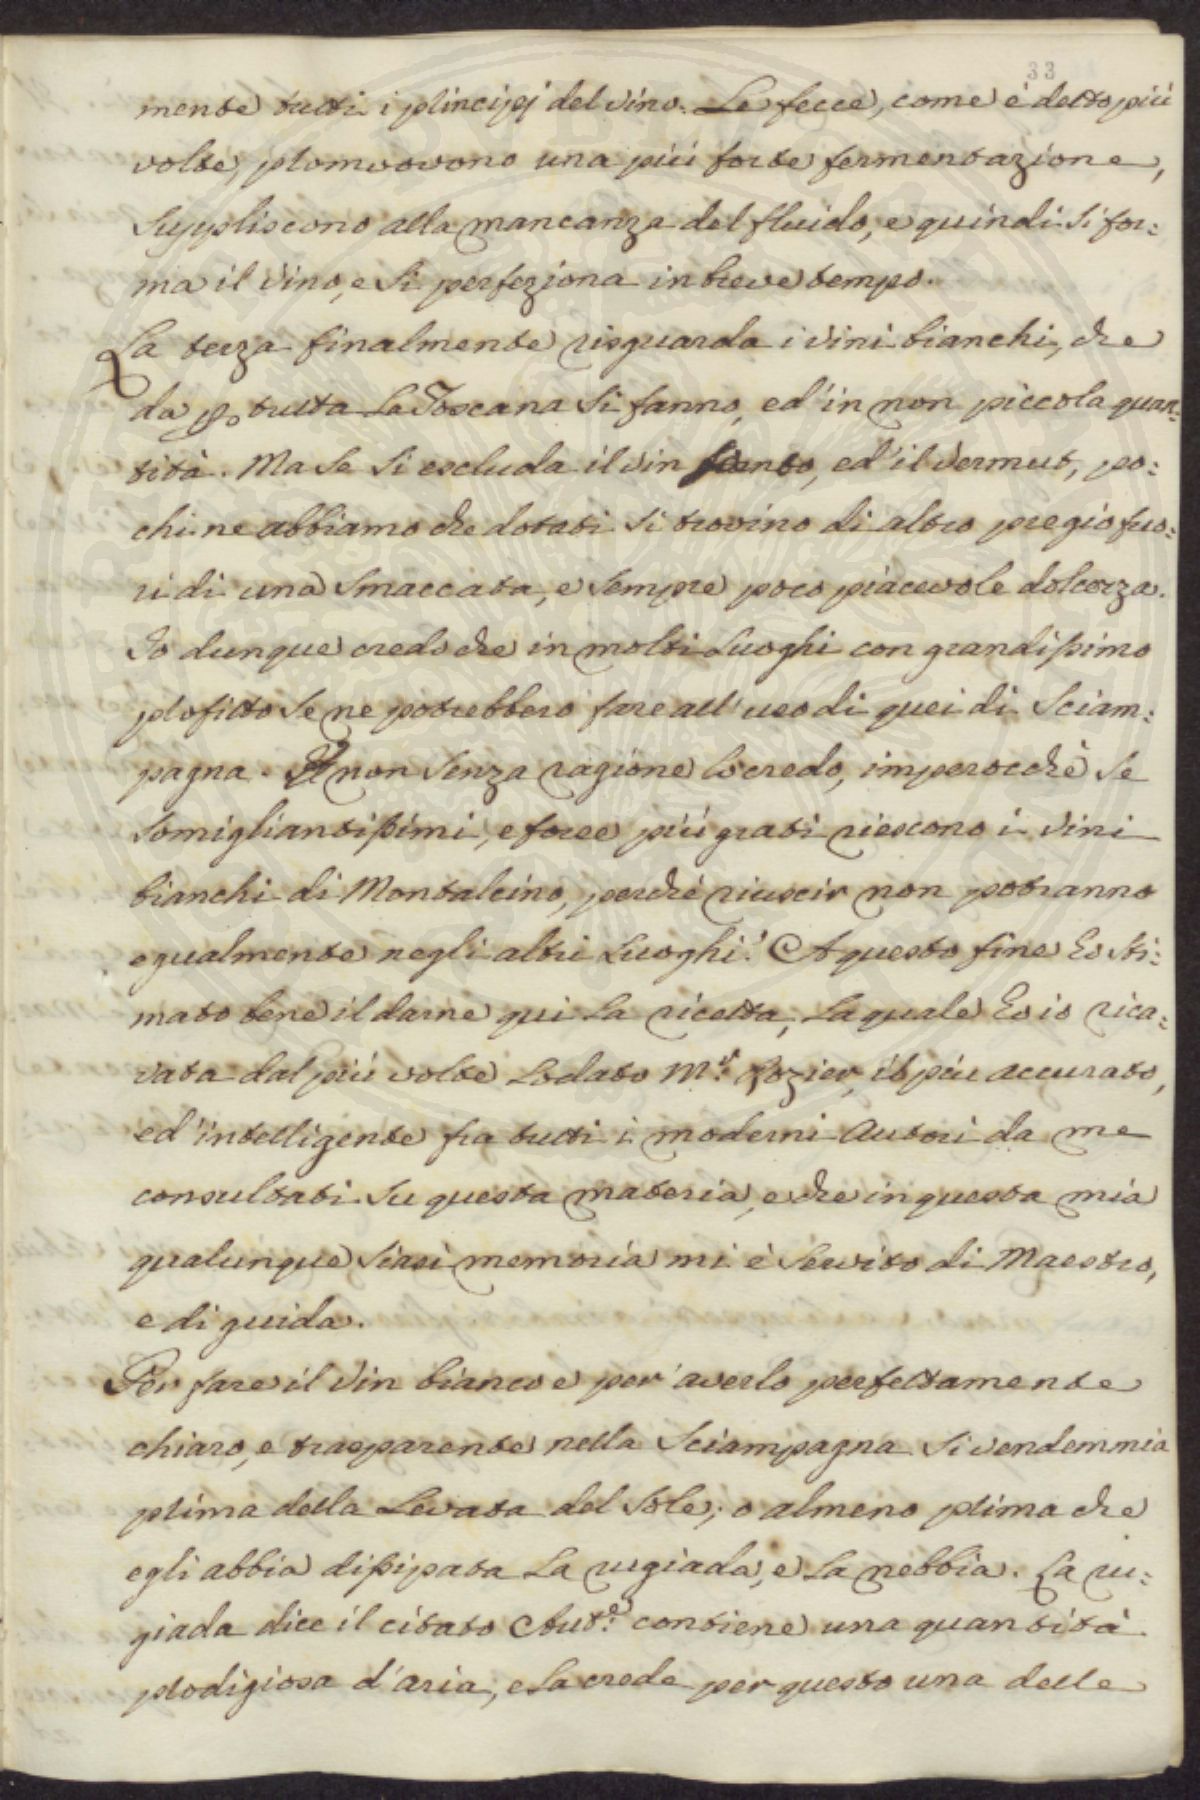 33
mente tutti i principj del vino. Le fecce, come è detto più
volte, promuovono una più forte fermentazione,
suppliscono alla mancanza del fluido, e quindi si for:
ma il vino, e si perfeziona in breve tempo.
La terza finalmente risguarda i vini bianchi, che
da p. tutta la Toscana si fanno, ed' in non piccola quan:
tità. Ma se si escluda il vin santo, ed' il vermut, po:
chi ne abbiamo che dotati si trovino di altro pregio fuo:
ri di una smaccata, e sempre poco piacevole dolcezza.
Io dunque credo che in molti Luoghi con grandissimo
profitto se ne potrebbero fare all' uso di quei di Sciam:
pagna. E non senza ragione lo credo, imperocchè se
somigliantissimi, e forse più grati riescono i vini
bianchi di Montalcino, perchè riuscir non potranno
egualmente negli altri Luoghi? A questo fine ho sti:
mato bene il darne qui la ricetta, la quale ho io rica:
vata dal più volte lodato M.r Rozier, il più accurato,
ed' intelligente fra tutti i moderni Autori da me
consultati su questa materia, e che in questa mia
qualunque siasi memoria mi è servito di Maestro,
e di guida.
Per fare il vin bianco e per averlo perfettamente
chiaro, e trasparente nella Sciampagna si vendemmia
prima della Levata del Sole, o almeno prima che
egli abbia dissipata la rugiada, e la nebbia. La ru:
giada dice il citato Aut.e contiene una quantità
prodigiosa d'aria, e la crede per questo una delle